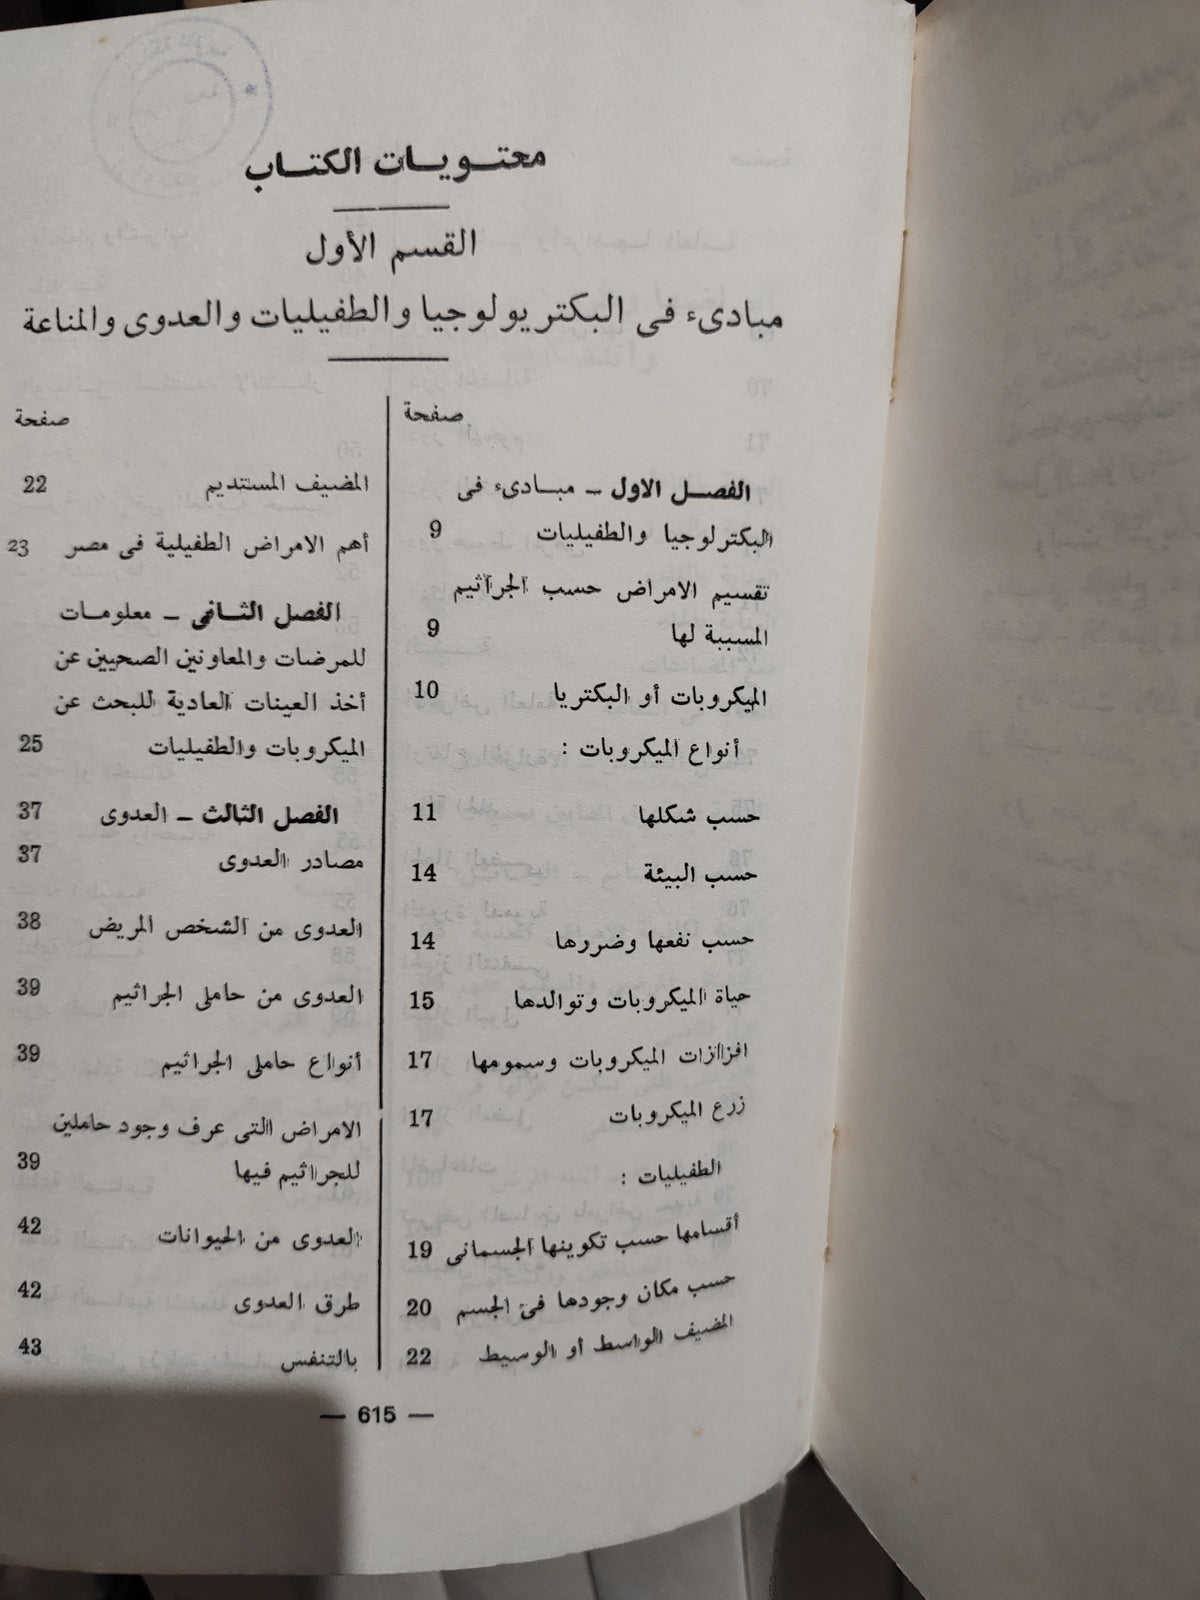 محتويات الكتاب
القسم الأول
مبادىء فى البكتريولوجيا والطفيليات والعدوى والمناعة
صفحة
الفصل الاول – مبادىء فى
البكترلوجيا والطفيليات 9
تقسيم الامراض حسب الجراثيم
المسببة لها 9
الميكروبات أو البكتريا 10
أنواع الميكروبات :
حسب شكلها 11
حسب البيئة 14
حسب نفعها وضررها 14
حياة الميكروبات وتوالدها 15
افرازات الميكروبات وسمومها 17
زرع الميكروبات 17
الطفيليات :
أقسامها حسب تكوينها الجسمانى 19
حسب مكان وجودها فى الجسم 20
المضيف الواسط أو الوسيط 22
صفحة
المضيف المستديم 22
أهم الامراض الطفيلية فى مصر 23
الفصل الثانى – معلومات
للمرضات والمعاونين الصحيين عن
أخذ العينات العادية للبحث عن
الميكروبات والطفيليات 25
الفصل الثالث – العدوى 37
مصادر العدوى 37
العدوى من الشخص المريض 38
العدوى من حاملى الجراثيم 39
أنواع حاملى الجراثيم 39
الامراض التى عرف وجود حاملين
للجراثيم فيها 39
العدوى من الحيوانات 42
طرق العدوى 42
بالتنفس 43
— 615 —